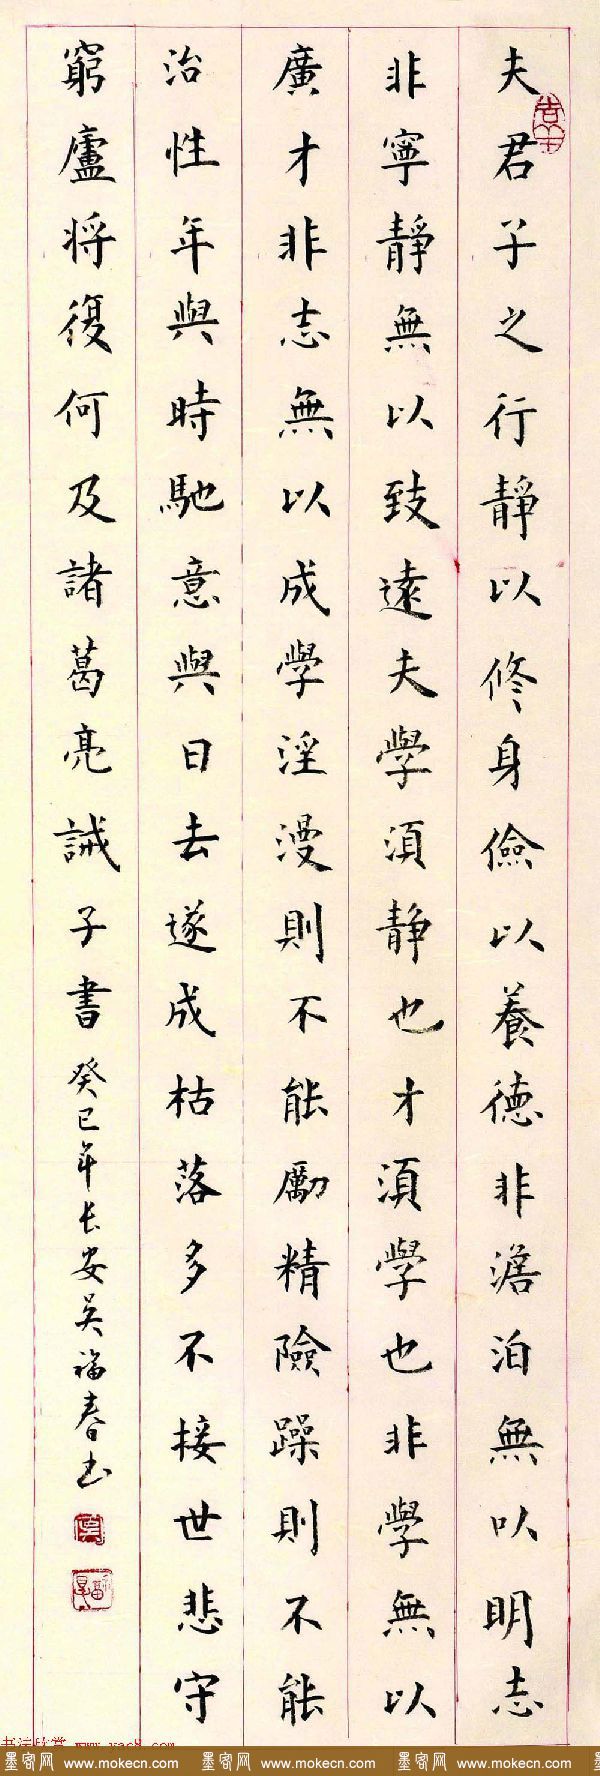 夫君子之行靜以修身儉以養德非澹泊無以明志
非寧靜無以致遠夫學須靜也才須學也非學無以
廣才非志無以成學淫漫則不能勵精險躁則不能
治性年與時馳意與日去遂成枯落多不接世悲守
窮廬將復何及諸葛亮誡子書癸巳年长安吴福春书
墨客网 www.mokecn.com 墨客网 www.mokecn.com 墨客网 www.mokecn.com